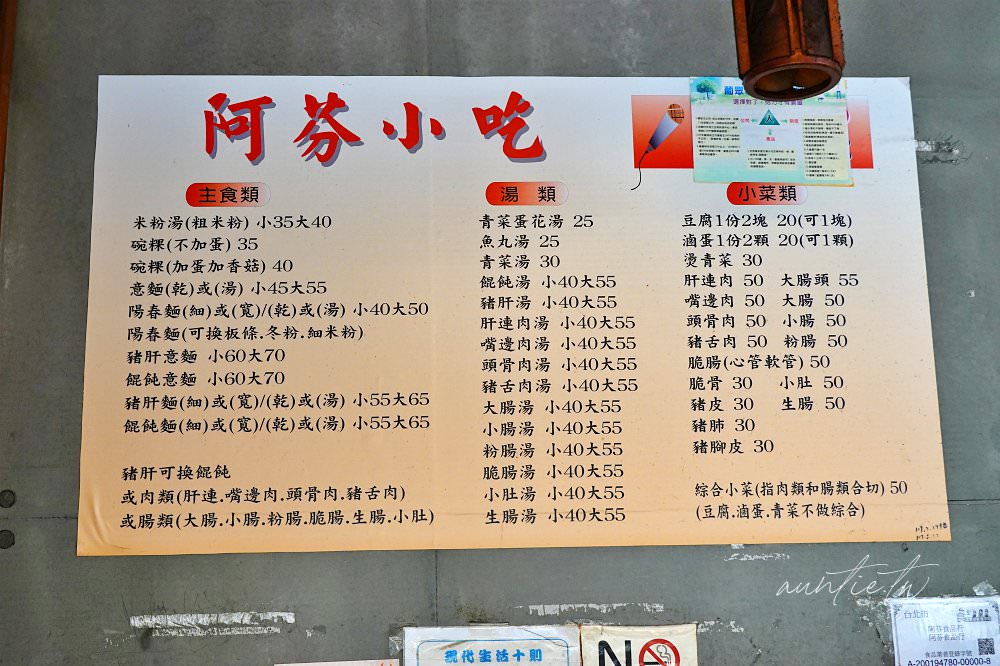 阿芬小吃
主食類
米粉湯(粗米粉) 小35大40
碗粿(不加蛋) 35
碗粿(加蛋加香菇) 40
意麵(乾)或(湯) 小45大55
陽春麵(細)或(寬)/(乾)或(湯) 小40大50
陽春麵(可換板條.冬粉.細米粉)
豬肝意麵 小60大70
餛飩意麵 小60大70
豬肝麵(細)或(寬)/(乾)或(湯) 小55大65
餛飩麵(細)或(寬)/(乾)或(湯) 小55大65
豬肝可換餛飩
或肉類(肝連.嘴邊肉.頭骨肉.豬舌肉)
或腸類(大腸.小腸.粉腸.脆腸.生腸.小肚)
湯 類
青菜蛋花湯 25
魚丸湯 25
青菜湯 30
餛飩湯 小40大55
豬肝湯 小40大55
肝連肉湯 小40大55
嘴邊肉湯 小40大55
頭骨肉湯 小40大55
豬舌肉湯 小40大55
大腸湯 小40大55
小腸湯 小40大55
粉腸湯 小40大55
脆腸湯 小40大55
小肚湯 小40大55
生腸湯 小40大55
小菜類
豆腐1份2塊 20(可1塊)
滷蛋1份2顆 20(可1顆)
燙青菜 30
肝連肉 50 大腸頭 55
嘴邊肉 50 大腸 50
頭骨肉 50 小腸 50
豬舌肉 50 粉腸 50
脆腸(心管軟管) 50
脆骨 30 小肚 50
豬皮 30 生腸 50
豬肺 30
豬腳皮 30
綜合小菜(指肉類和腸類合切) 50
(豆腐.滷蛋.青菜不做綜合)
auntie.tw
現代生活十則
台北市
阿芬食品行
A-200194780-00000-8